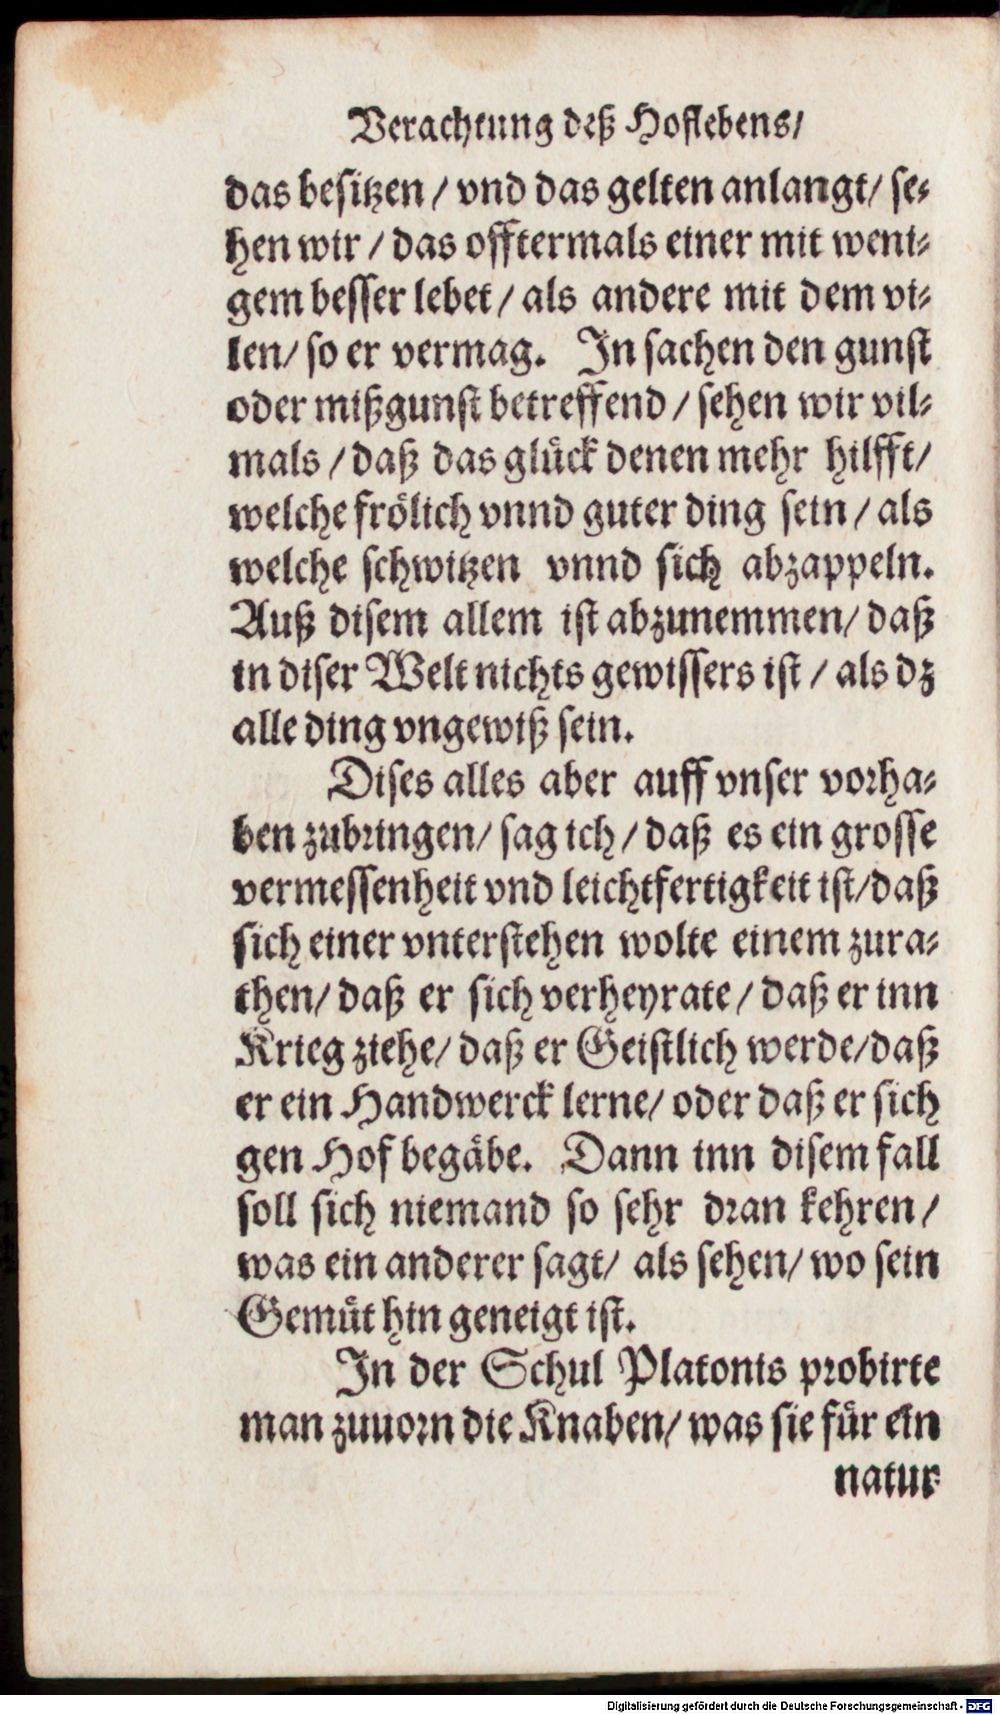 Verachtung deß Hoflebens/
das besitzen / vnd das gelten anlangt/ se-
hen wir / das offtermals einer mit weni-
gem besser lebet / als andere mit dem vi-
len/ so er vermag. In sachen den gunst
oder mißgunst betreffend / sehen wir vil-
mals / daß das glück denen mehr hilfft/
welche frölich vnnd guter ding sein / als
welche schwitzen vnnd sich abzappeln.
Auß disem allem ist abzunemmen/ daß
in diser Welt nichts gewissers ist / als dz
alle ding vngewiß sein.
Dises alles aber auff vnser vorha-
ben zubringen/ sag ich / daß es ein grosse
vermessenheit vnd leichtfertigkeit ist/daß
sich einer vnterstehen wolte einem zura-
then/ daß er sich verheyrate / daß er inn
Krieg ziehe/ daß er Geistlich werde/daß
er ein Handwerck lerne/ oder daß er sich
gen Hof begäbe. Dann inn disem fall
soll sich niemand so sehr dran kehren /
was ein anderer sagt/ als sehen/ wo sein
Gemüt hin geneigt ist.
In der Schul Platonis probirte
man zuuorn die Knaben/ was sie für ein
natur
Digitalisierung gefördert durch die Deutsche Forschungsgemeinschaft - DFG